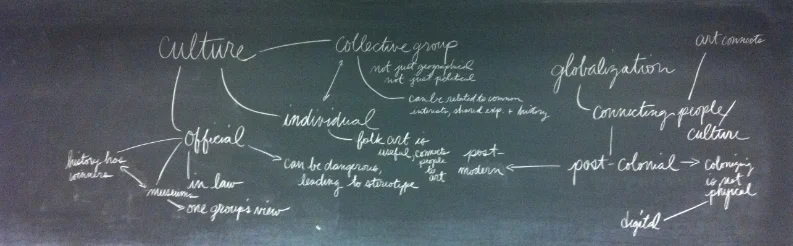 culture
collective group
not just geographical
not just political
can be related to common
interests, shared exp. + history
individual
folk art is
useful, connects
people
to
art
official
can be dangerous,
leading to stereotype
history has
winners
museums
in law
one group's view
art connects
globalization
connecting people/
culture
post-colonial
post-
modern
colonizing
is not
physical
digital